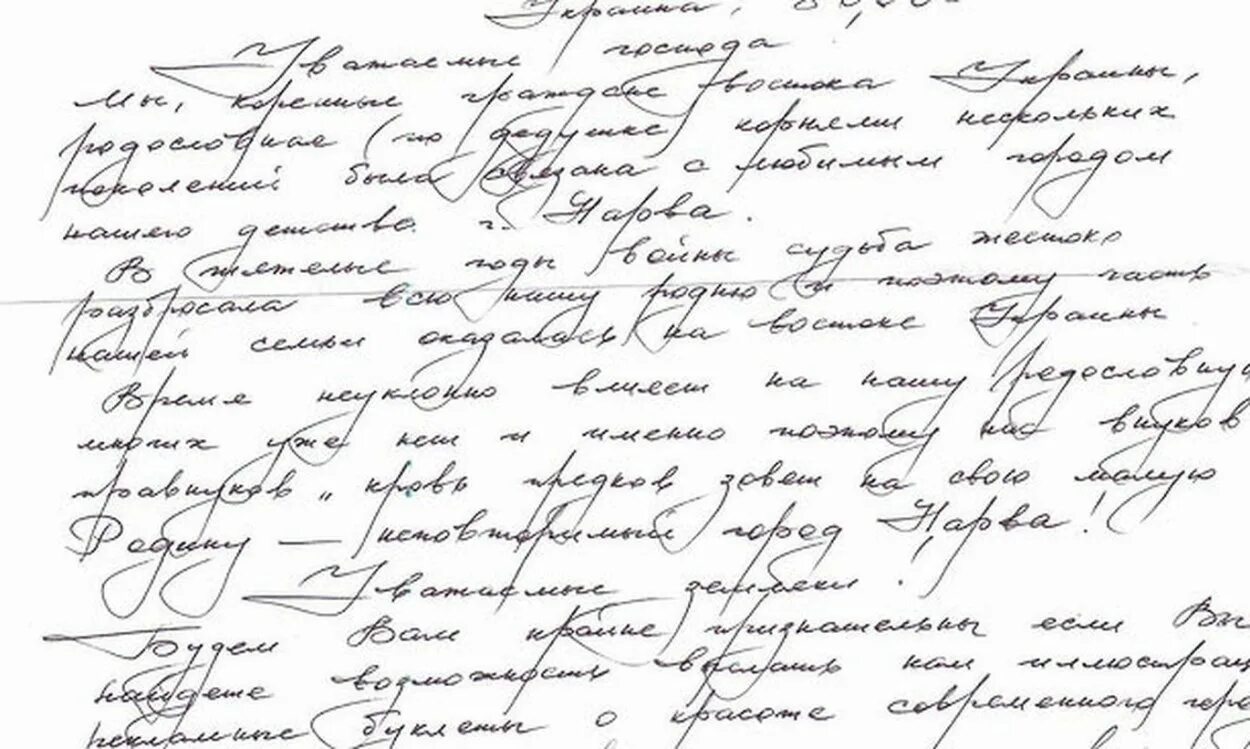 Украина,
Уважаемые господа!
Мы, коренные граждане востока Украины,
родословная (по дедушке) корнями нескольких
поколений была связана с любимым городом
нашего детства г. Нарва.
В тяжелые годы войны судьба жестоко
разбросала всю нашу родню и поэтому часть
нашей семьи оказалась на востоке Украины
Время неуклонно влияет на нашу родословную
многих уже нет и именно поэтому нас внуков
правнуков „ кровь предков зовет на свою малую
Родину — неповторимый город Нарва!
Уважаемые земляки!
Будем Вам крайне признательны если Вы
найдете возможность выслать нам иллюстрац
рекламные буклеты о красоте современного горо